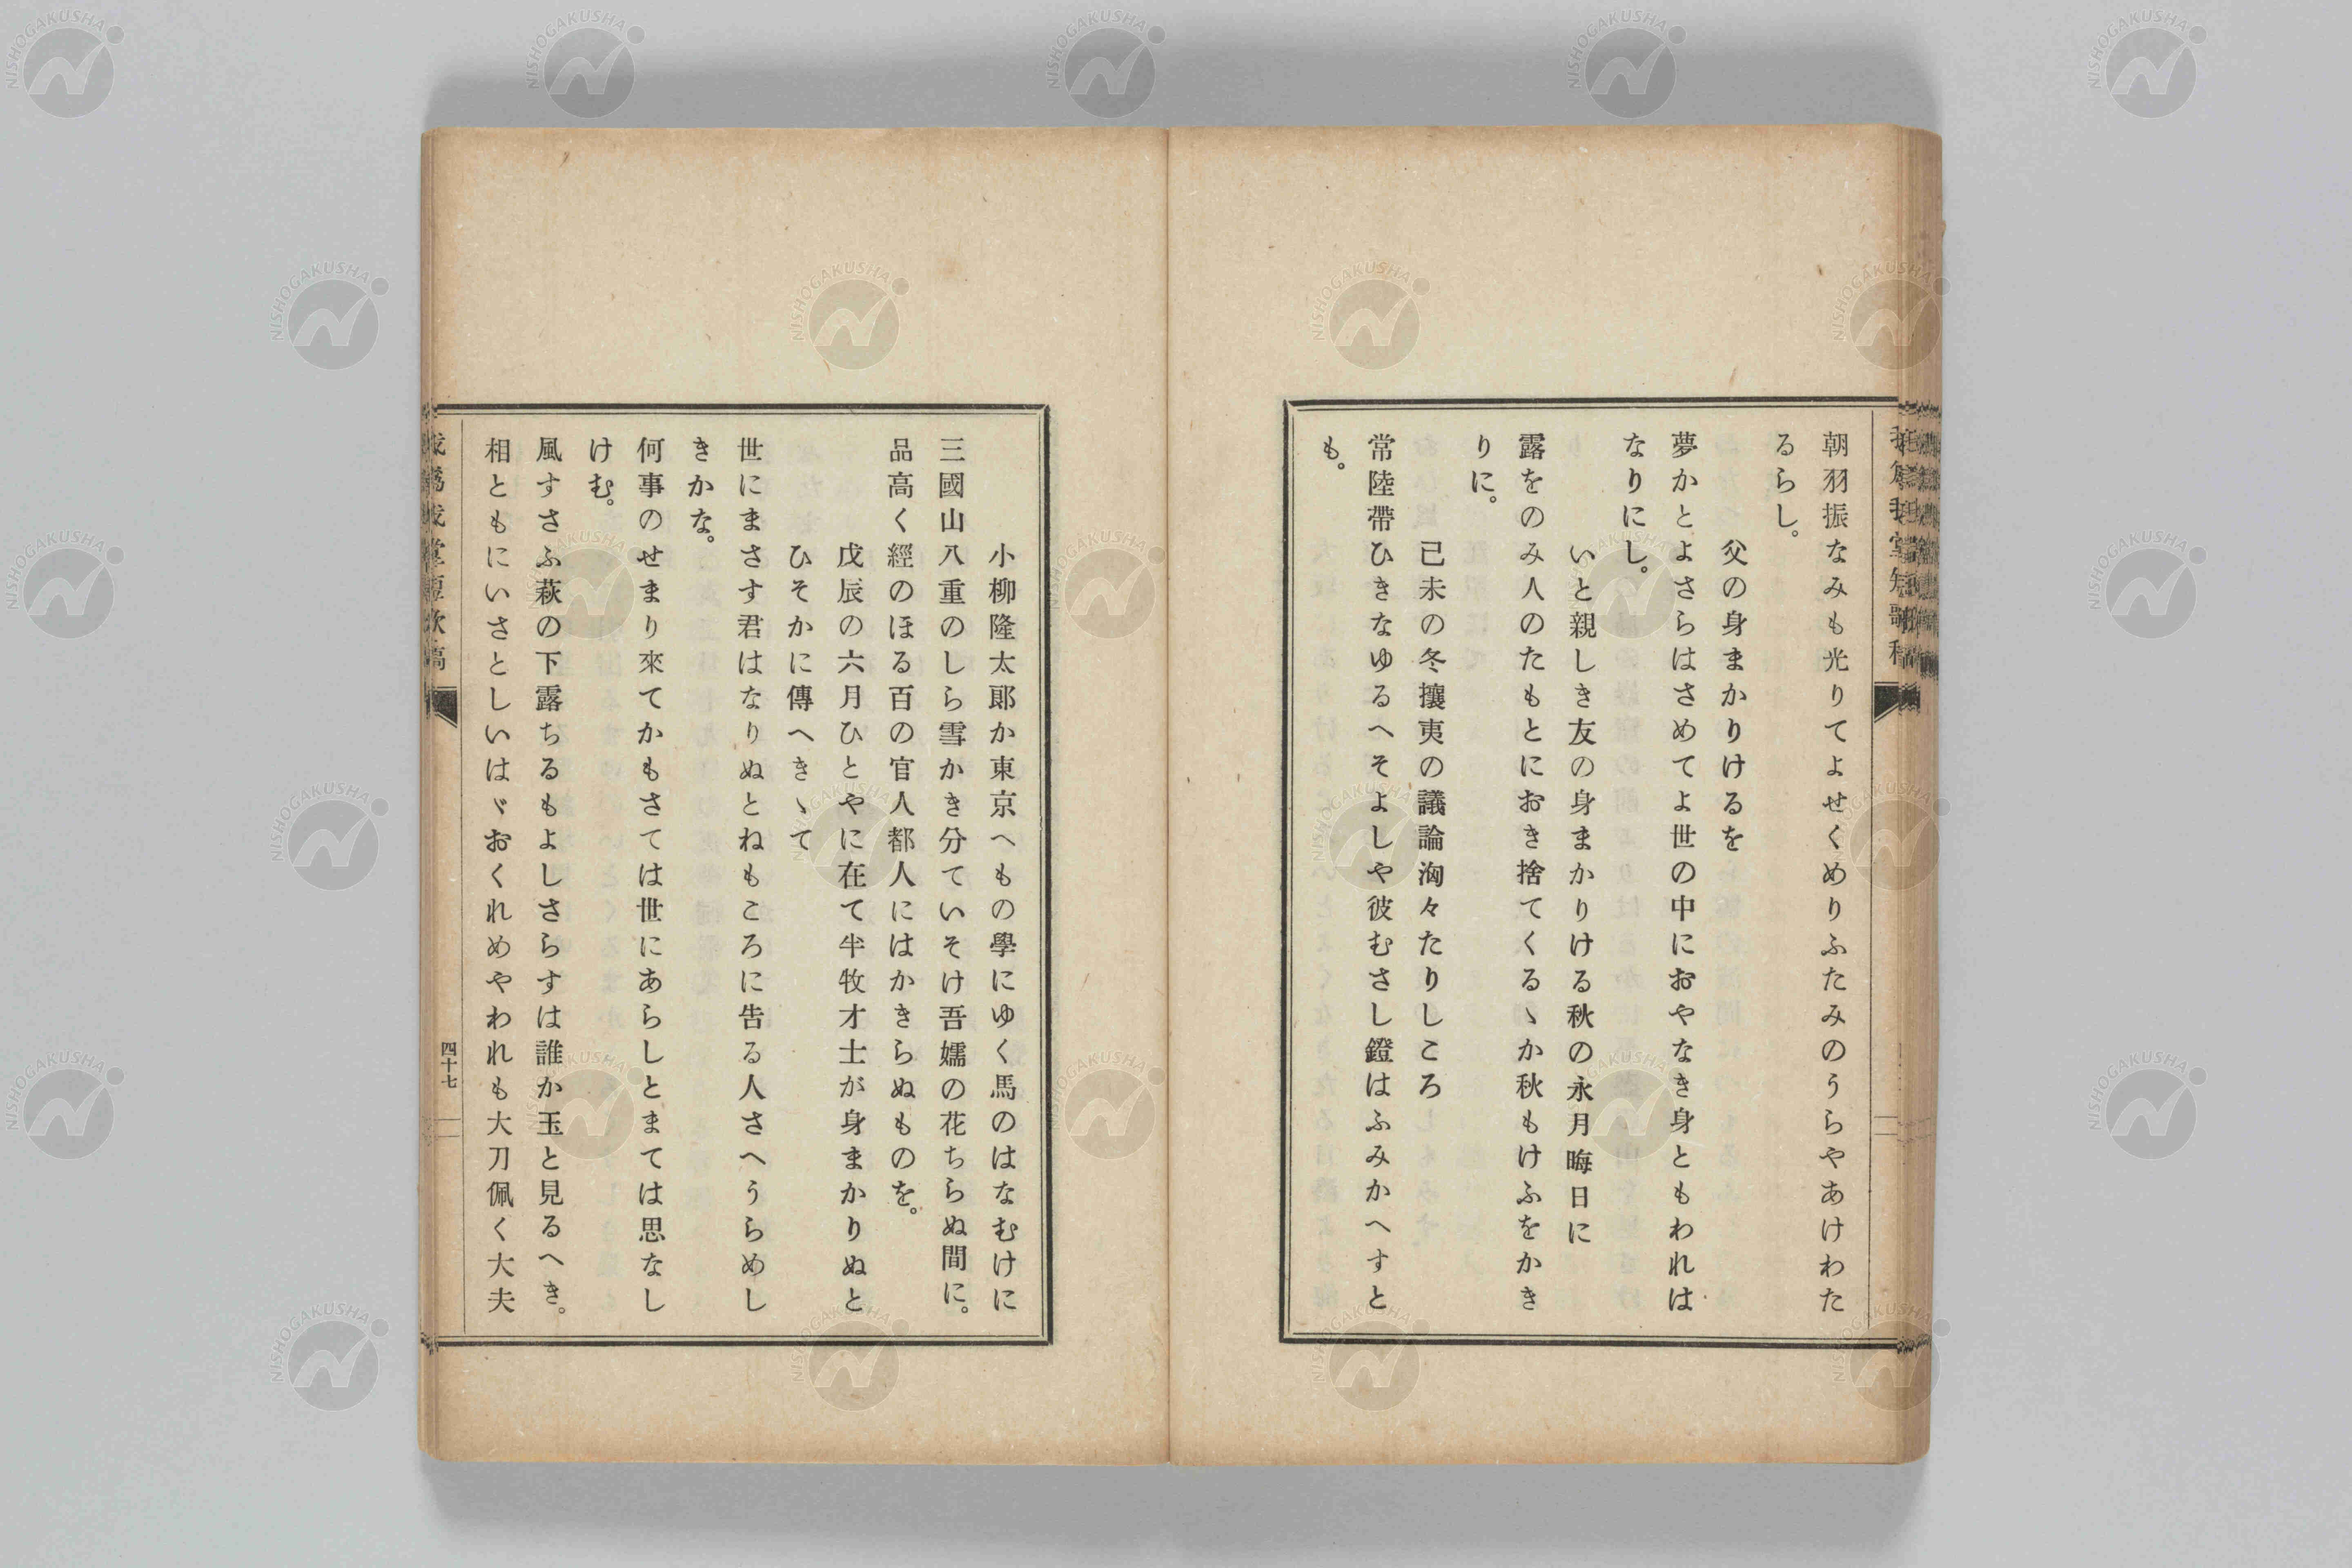 朝羽振なみも光りてよせくめりふたみのうらやあけわた
るらし。
父の身まかりけるを
夢かとよさらはさめてよ世の中におやなき身ともわれは
なりにし。
いと親しき友の身まかりける秋の永月晦日に
露をのみ人のたもとにおき捨てくるゝか秋もけふをかき
りに。
己未の冬攘夷の議論洶々たりしころ
常陸帶ひきなゆるへそよしや彼むさし鐙はふみかへすと
も。
小柳隆太郎か東京へもの學にゆく馬のはなむけに
三國山八重のしら雪かき分ていそけ吾嬬の花ちらぬ間に。
品高く經のほる百の官人都人にはかきらぬものを。
戊辰の六月ひとやに在て半牧才士が身まかりぬと
ひそかに傳へきゝて
世にまさす君はなりぬとねもころに告る人さへうらめし
きかな。
何事のせまり來てかもさては世にあらしとまては思なし
けむ。
風すさふ萩の下露ちるもよしさらすは誰か玉と見るへき。
相ともにいさとしいはゞおくれめやわれも大刀佩く大夫
四十七
NISHOGAKUSHA